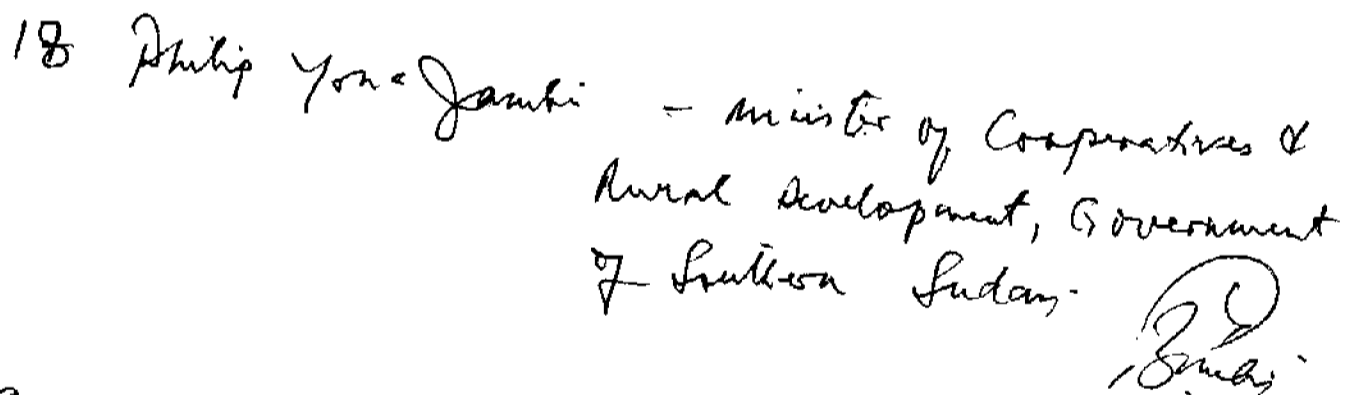 18 Philip Yona Jambi - Minister of Cooperatives &
Rural Development, Government
of Southern Sudan.